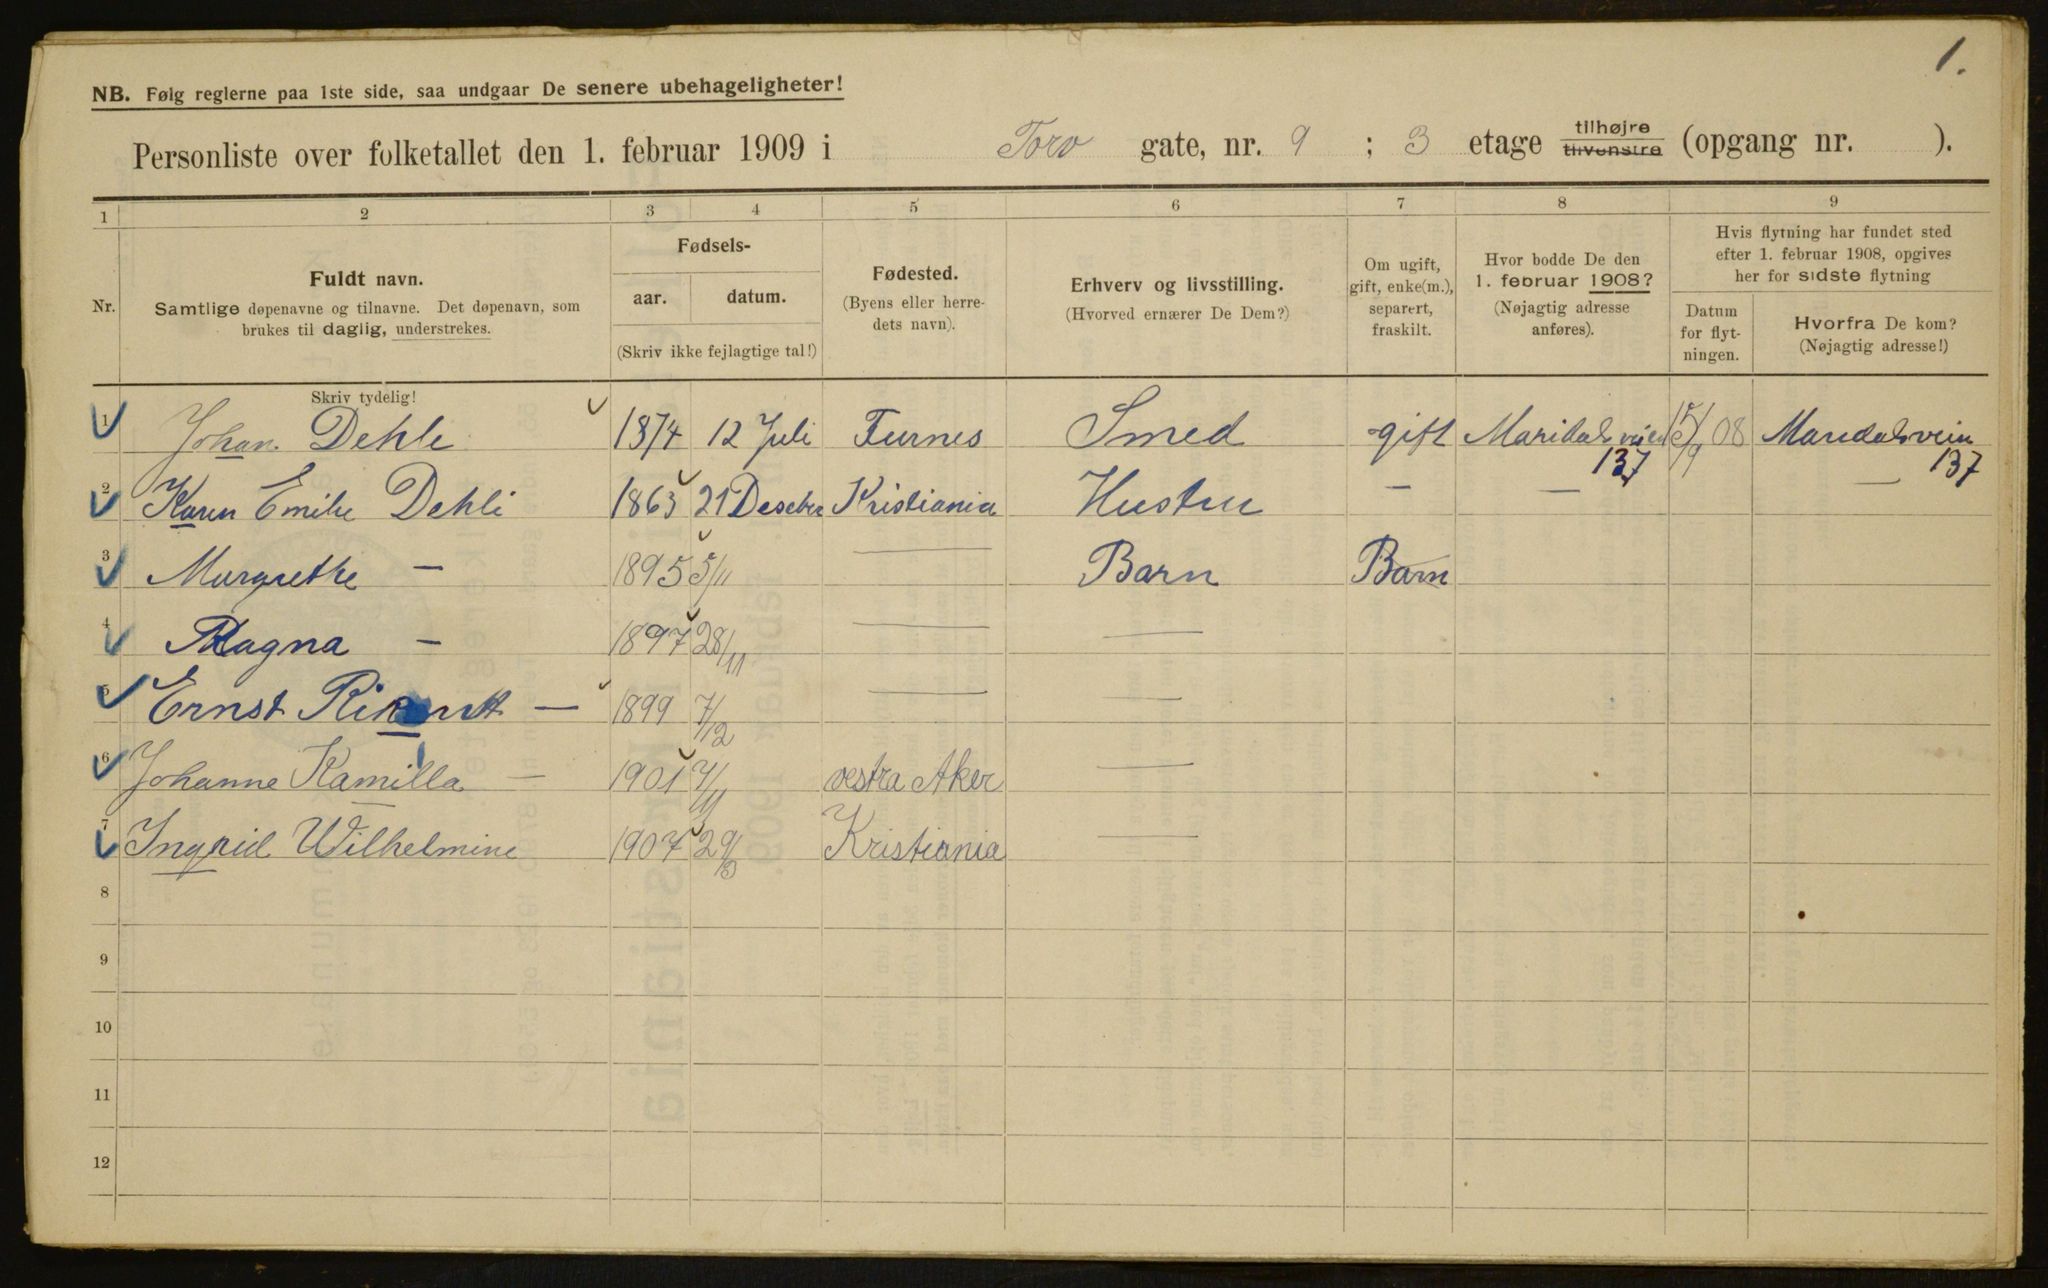 1.
NB. Følg reglerne paa 1ste side, saa undgaar De senere ubehageligheter!
Personliste over folketallet den 1. februar 1909 i Torv gate, nr. 9 ; 3 etage tilhøjre tilvenstre (opgang nr. ).
1 2 3 4 5 6 7 8 9
Nr.
Fuldt navn.
Samtlige døpenavne og tilnavne. Det døpenavn, som
brukes til daglig, understrekes.
Skriv tydelig!
Fødsels-
aar. datum.
(Skriv ikke fejlagtige tal!)
Fødested.
(Byens eller herre-
dets navn).
Erhverv og livsstilling.
(Hvorved ernærer De Dem?)
Om ugift,
gift, enke(m.),
separert,
fraskilt.
Hvor bodde De den
1. februar 1908?
(Nøjagtig adresse
anføres).
Hvis flytning har fundet sted
efter 1. februar 1908, opgives
her for sidste flytning
Datum
for flyt-
ningen.
Hvorfra De kom?
(Nøjagtig adresse!)
1 Johan Dehli 1874 12 Juli Furnes Smed gift Maridalsveien 137 15/9 08 Maridalsvein 137
2 Karen Emilie Dehli 1863 21 Desebr Kristiania Hustru — — —
3 Margrethe — 1895 5/11 — Barn Barn
4 Ragna — 1897 28/11 — —
5 Ernst — 1899 7/12 — —
6 Johanne Kamilla — 1901 7/11 vestra Aker —
7 Ingrid Wilhelmine 1907 29/3 Kristiania —
8
9
10
11
12